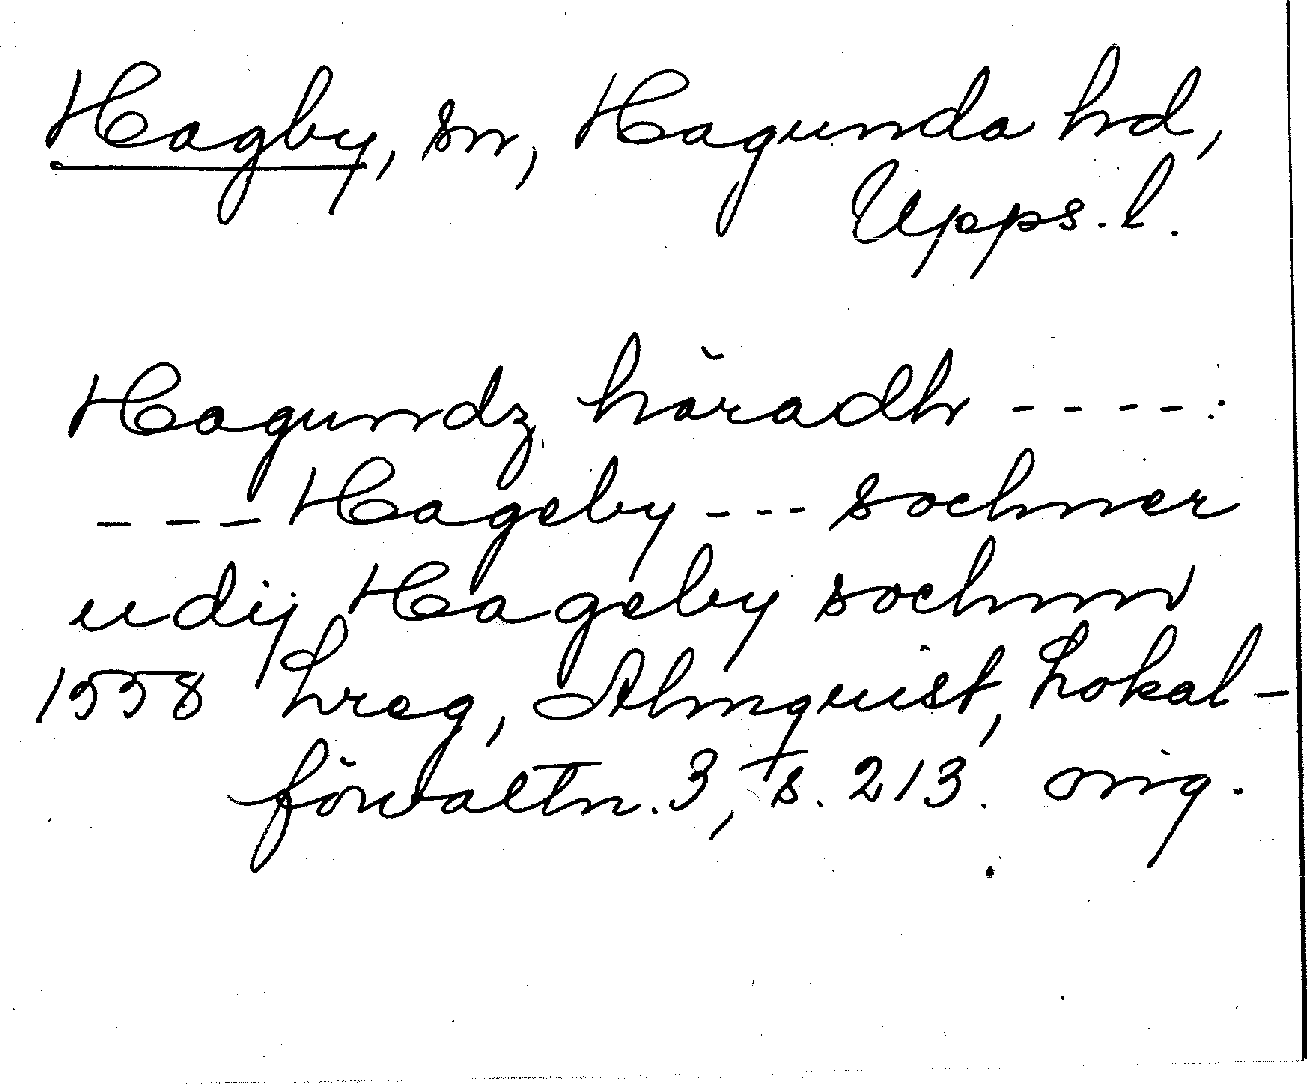 Hagby, sn, Hagunda hd,
Upps. l.
Hagundz häradh ----:
--- Hageby --- sochner
udij Hageby sochnn
1558 Lreg, Almquist, Lokal-
förvaltn. 3, s. 213. orig.